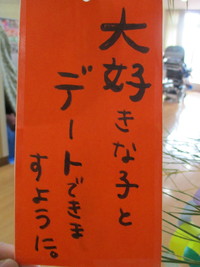 大好きな子と
デートできま
すように。